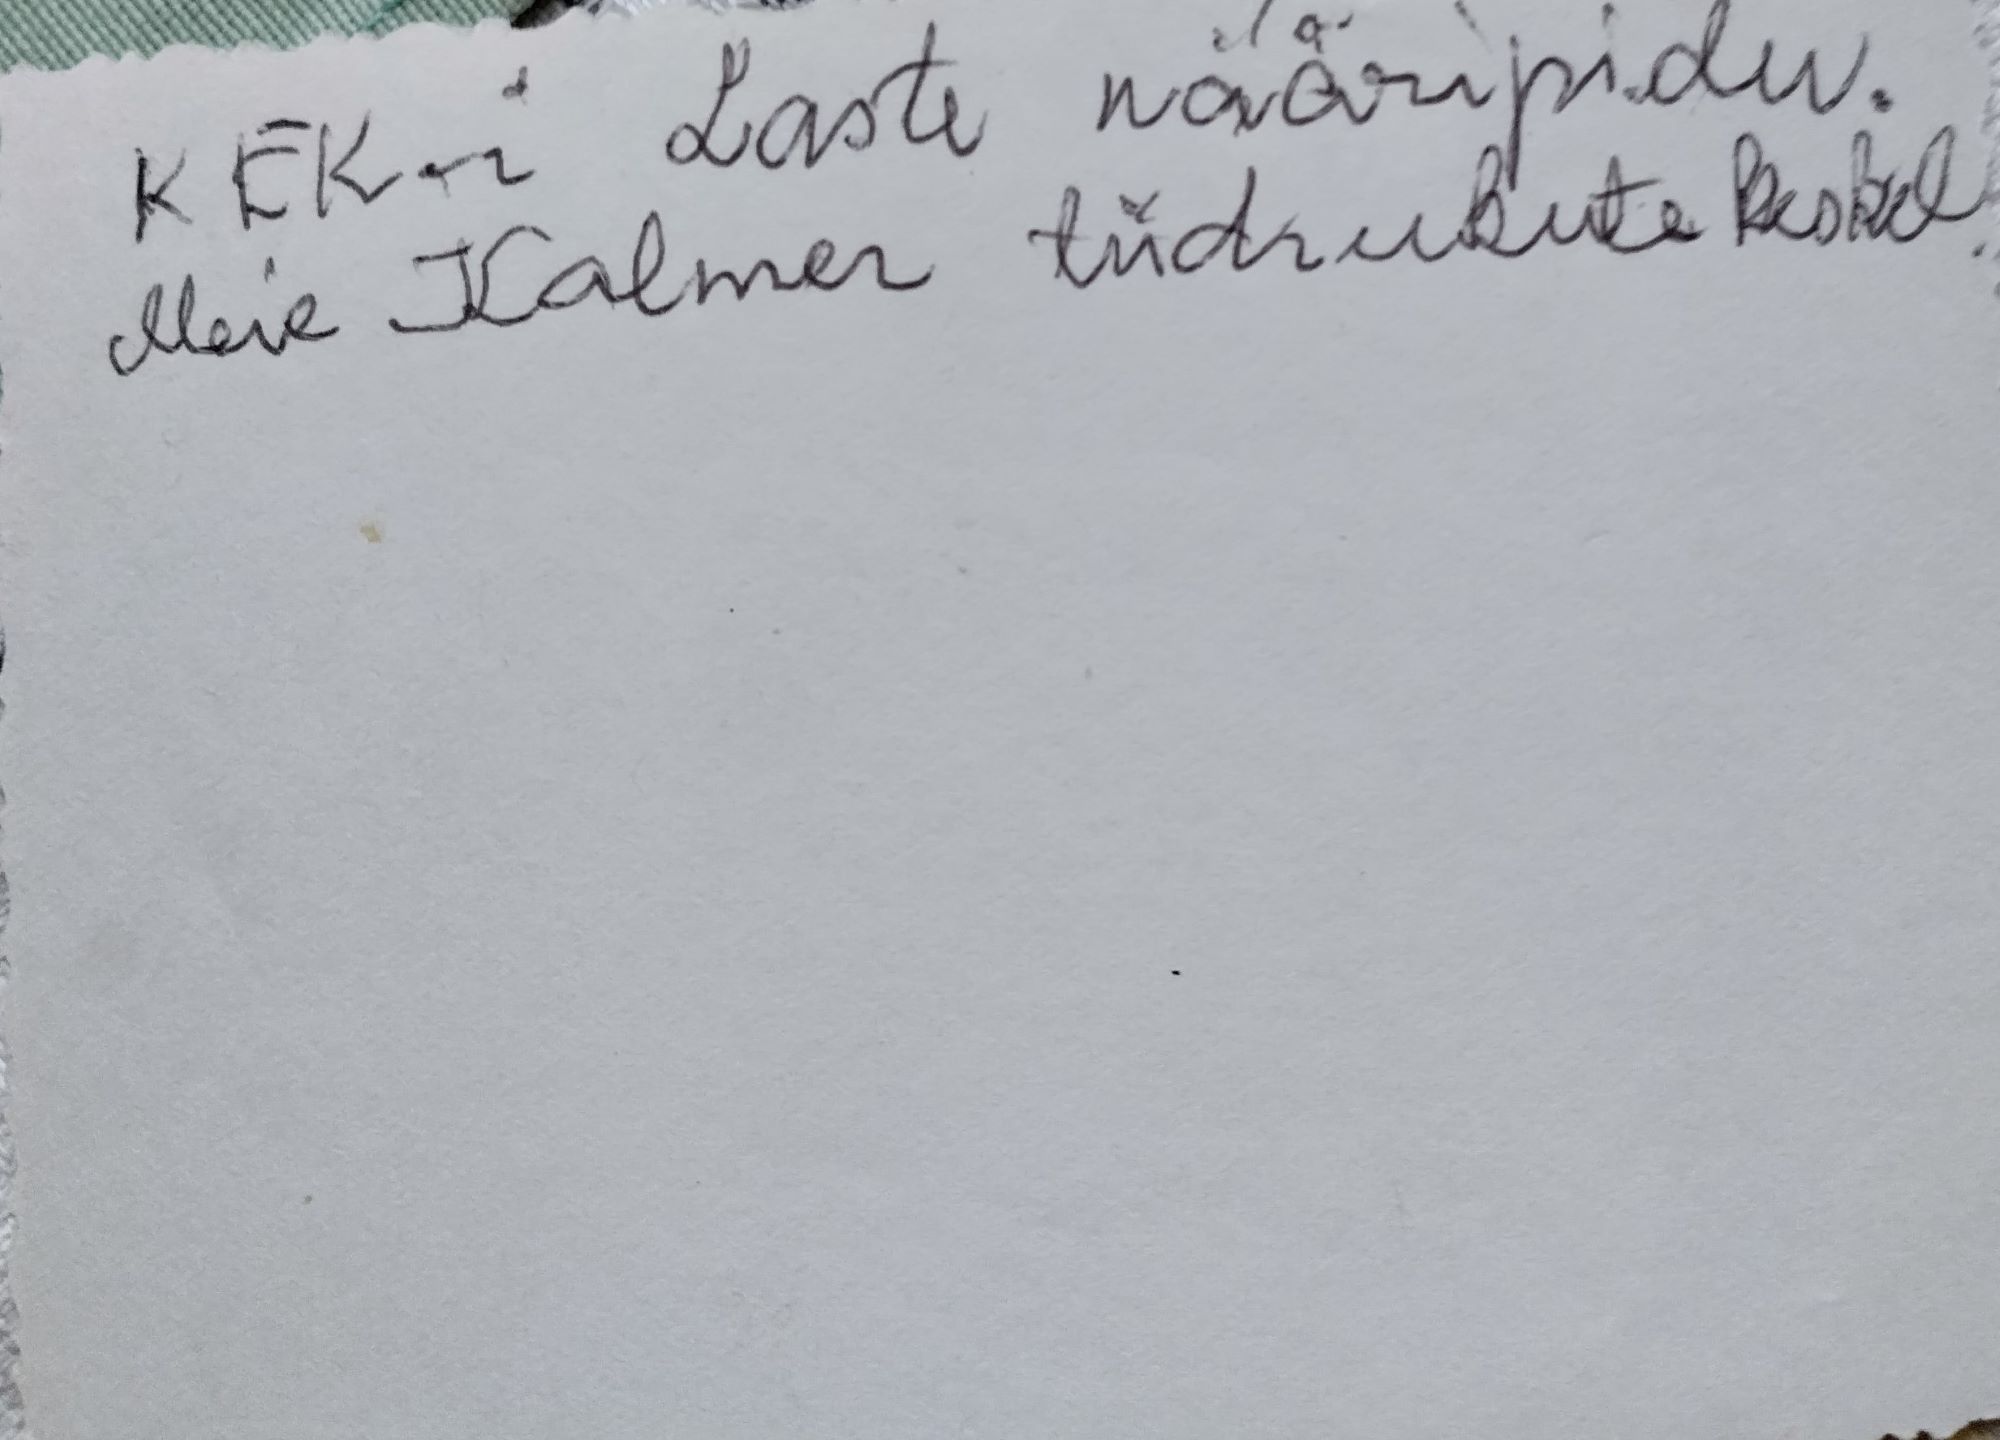 KEK-i Laste nääripidu.
Meie Kalmer tüdrukute keskel.